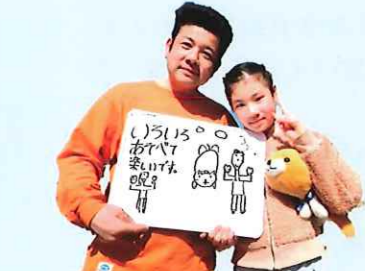 いろいろ
あそべて
楽しいです。